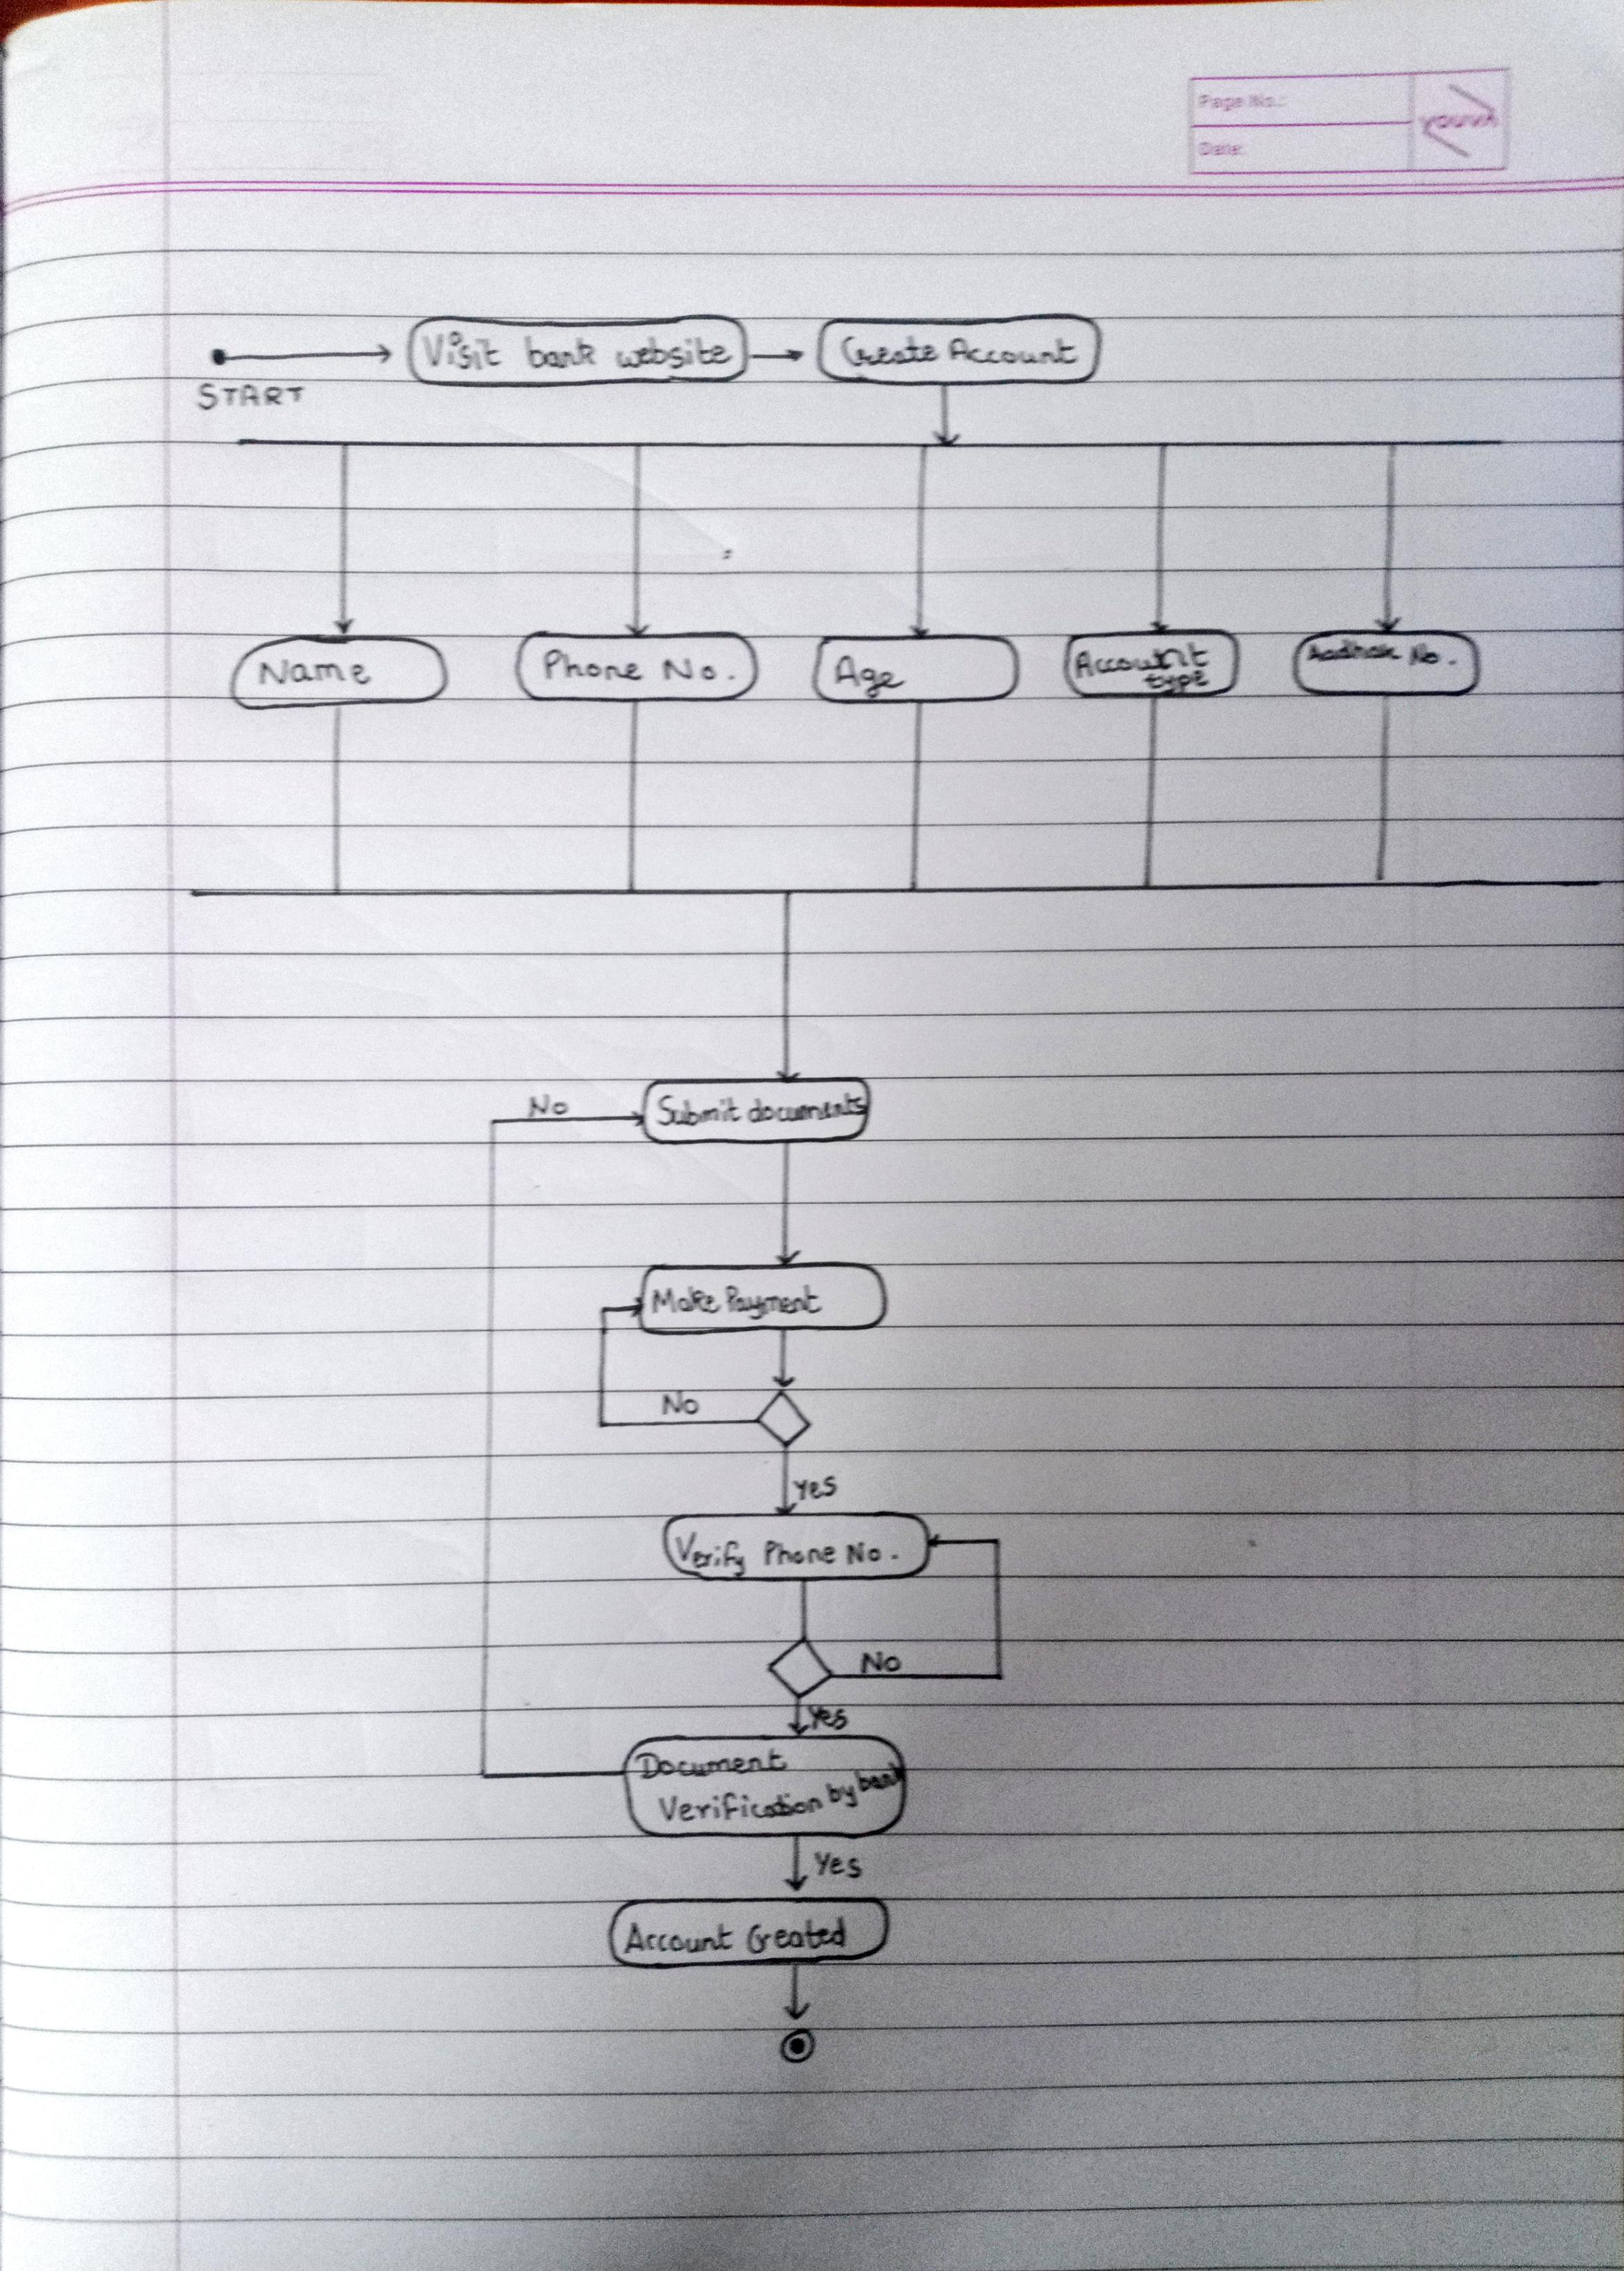 Page No.:
Date:
youva
Visit bank website
Create Account
START
Name
Phone No.
Age
Account
type
Aadhar No.
No
Submit documents
Make Payment
No
Yes
Verify Phone No.
No
Yes
Document
Verification by bank
Yes
Account Created